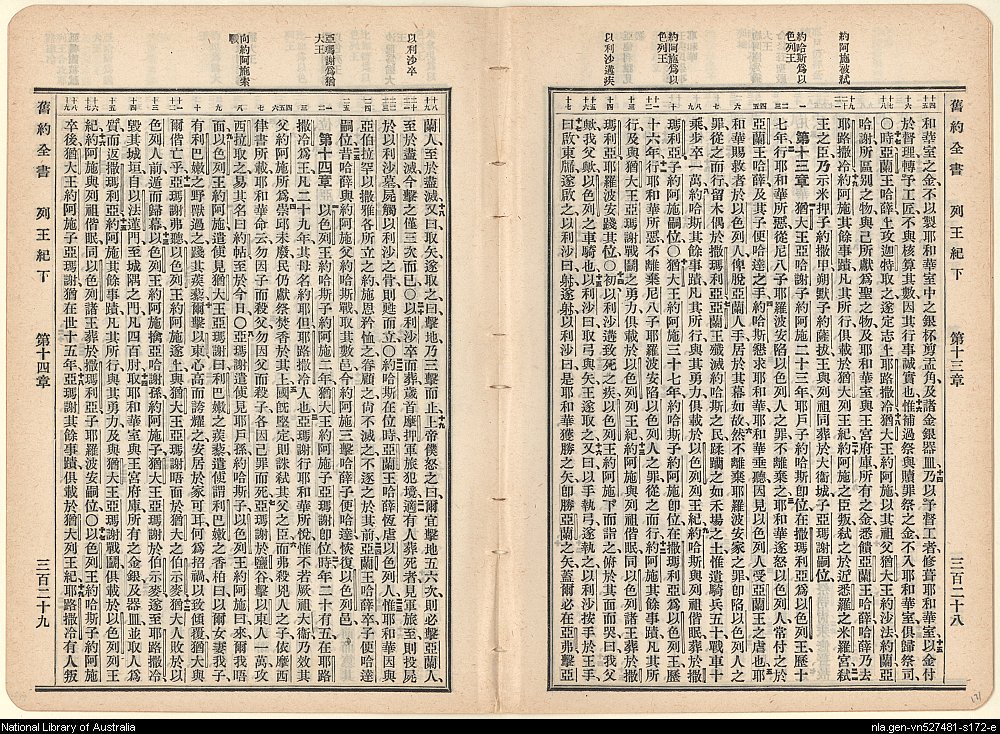 約阿施被弒
約哈斯爲以
色列王
約阿施爲以
色列王
以利沙遘疾
舊約全書 列王紀下 第十三章 三百二十八
和華室之金不以製耶和華室中之銀杯剪盂角及諸金銀器皿乃以予督工者修葺耶和華室以金付
於督理轉予工匠不與核算其數因其行事誠實也惟補過祭與贖罪祭之金不入耶和華室俱歸祭司
〇時亞蘭王哈薛上攻迦特取之遂定志上耶路撒冷猶大王約阿施以其祖父猶大王約沙法約蘭亞
哈謝所區別之物與己所獻爲聖之物及耶和華室與王宮府庫所有之金悉饋亞蘭王哈薛哈薛乃去
耶路撒冷約阿施其餘事蹟凡其所行俱載於猶大列王紀約阿施之臣叛弒之於近悉羅之米羅宮弒
王之臣乃示米押子約撒甲朔默子約薩拔王與列祖同葬於大衞城子亞瑪謝嗣位
第十三章 猶大王亞哈謝子約阿施二十三年耶戶子約哈斯卽位在撒瑪利亞爲以色列王歷十
七年行耶和華所惡從尼八子耶羅波安陷以色列人之罪而不離棄之耶和華遂怒以色列人常付之於
亞蘭王哈薛及其子便哈達之手約哈斯懇求耶和華耶和華垂聽因見以色列人受亞蘭王之虐也耶
和華賜救者於以色列人俾脫亞蘭人手居於其幕如故然不離棄耶羅波安家之罪卽陷以色列人之
罪從之而行留木偶於撒瑪利亞亞蘭王殲滅約哈斯之民蹂躪之如禾場之土惟遺騎兵五十戰車十
乘步卒一萬約哈斯其餘事蹟凡其所行與其勇力俱載於以色列列王紀約哈斯與列祖偕眠葬於撒
瑪利亞子約阿施嗣位〇猶大王約阿施三十七年約哈斯子約阿施卽位在撒瑪利亞爲以色列王歷
十六年行耶和華所惡不離棄尼八子耶羅波安陷以色列人之罪從之而行約阿施其餘事蹟凡其所
行及與猶大王亞瑪謝戰鬬之勇力俱載於以色列列王紀約阿施與列祖偕眠同以色列諸王葬於撒
瑪利亞耶羅波安踐其位〇初以利沙遘致死之疾以色列王約阿施下而詣之俯於其面而哭曰我父
歟我父歟以色列之車騎也以利沙曰取弓與矢王遂取之又曰以手執弓遂執之以利沙按手於王手
曰啟東牖遂啟之以利沙曰射遂射以利沙曰是耶和華獲勝之矢卽勝亞蘭之矢蓋爾必在亞弗擊亞
以利沙卒
亞瑪謝爲猶
大王
向約阿施索
戰
蘭人至於盡滅又曰取矢遂取之曰擊地乃三擊而止上帝僕怒之曰爾宜擊地五六次則必擊亞蘭人
至於盡滅今擊之僅三次而已〇以利沙卒而葬歲首摩押軍旅犯境適有人葬死者見軍旅至則投屍
於以利沙墓屍觸以利沙之骨則甦而立〇約哈斯在位時亞蘭王哈薛恆虐以色列人惟耶和華因與
亞伯拉罕以撒雅各所立之約施恩矜恤之眷顧之尙不滅之不逐之於其前亞蘭王哈薛卒子便哈達
嗣位昔哈薛與約阿施父約哈斯戰取其數邑今約阿施三擊哈薛子便哈達恢復以色列諸邑
第十四章 以色列王約哈斯子約阿施二年猶大王約阿施子亞瑪謝卽位時年二十有五在耶路
撒冷爲王凡二十九年其母名約耶但耶路撒冷人也亞瑪謝行耶和華所悅惟不若厥祖大衞乃效其
父約阿施所爲崇邱未廢民仍獻祭焚香於其上國旣堅定則誅弒其父之臣而弗殺兇人之子依摩西
律書所載耶和華命云勿因子而殺父勿因父而殺子各因己罪而死亞瑪謝於鹽谷擊以東人一萬攻
西拉取之易其名曰約帖至於今日〇亞瑪謝遣使見耶戶孫約哈斯子以色列王約阿施曰來爾我唔
面以色列王約阿施遣使見猶大王亞瑪謝曰利巴嫩之蒺藜遣使謂利巴嫩之香柏曰以爾女妻我子
有利巴嫩之野獸過之踐其蒺藜爾擊以東心高而誇耀之安居於家可耳何爲招禍以致傾覆猶大與
爾偕亡乎亞瑪謝弗聽以色列王約阿施遂上與猶大王亞瑪謝唔面於猶大之伯示麥猶大人敗於以
色列人前遁而歸幕以色列王約阿施擒亞哈謝孫約阿施子猶大王亞瑪謝於伯示麥遂至耶路撒冷
毀其城垣自以法蓮門至城隅之門凡四百肘取耶和華室與王宮府庫所有之金銀及器皿並取人爲
質而返撒瑪利亞約阿施其餘事蹟凡其所行與其勇力及與猶大王亞瑪謝戰鬬俱載於以色列列王
紀約阿施與列祖偕眠同以色列諸王葬於撒瑪利亞子耶羅波安嗣位〇以色列王約哈斯子約阿施
卒後猶大王約阿施子亞瑪謝猶在世十五年亞瑪謝其餘事蹟俱載於猶大列王紀耶路撒冷有人叛
舊約全書 列王紀下 第十四章 三百二十九
171
National Library of Australia
nla.gen-vn527481-s172-e